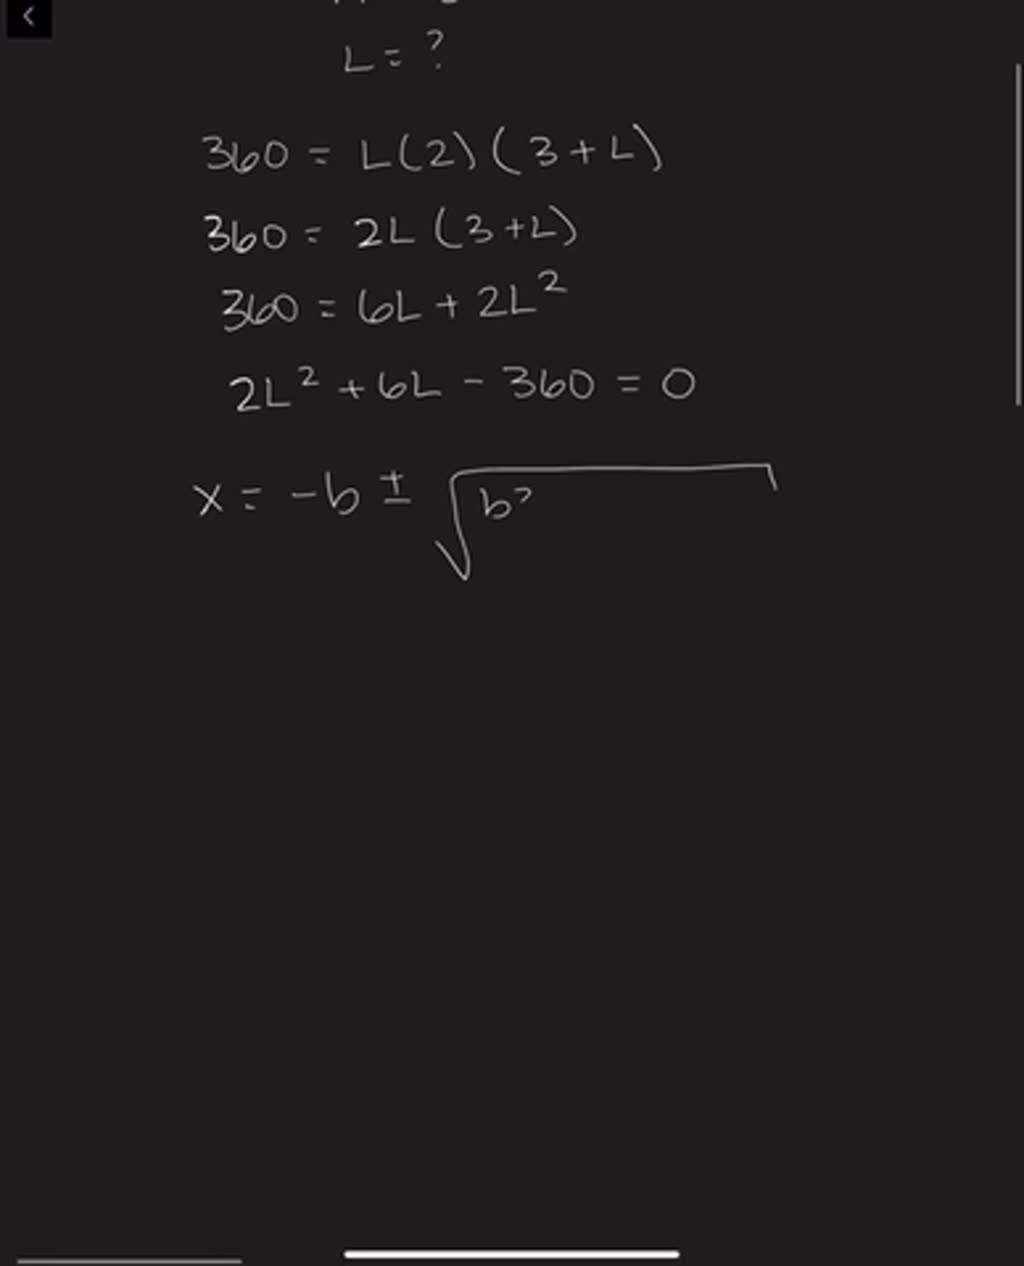 L = ?
360 = L(2)(3+L)
360 = 2L(3+L)
360 = 6L + 2L²
2L² + 6L - 360 = 0
x = -b ± √b²